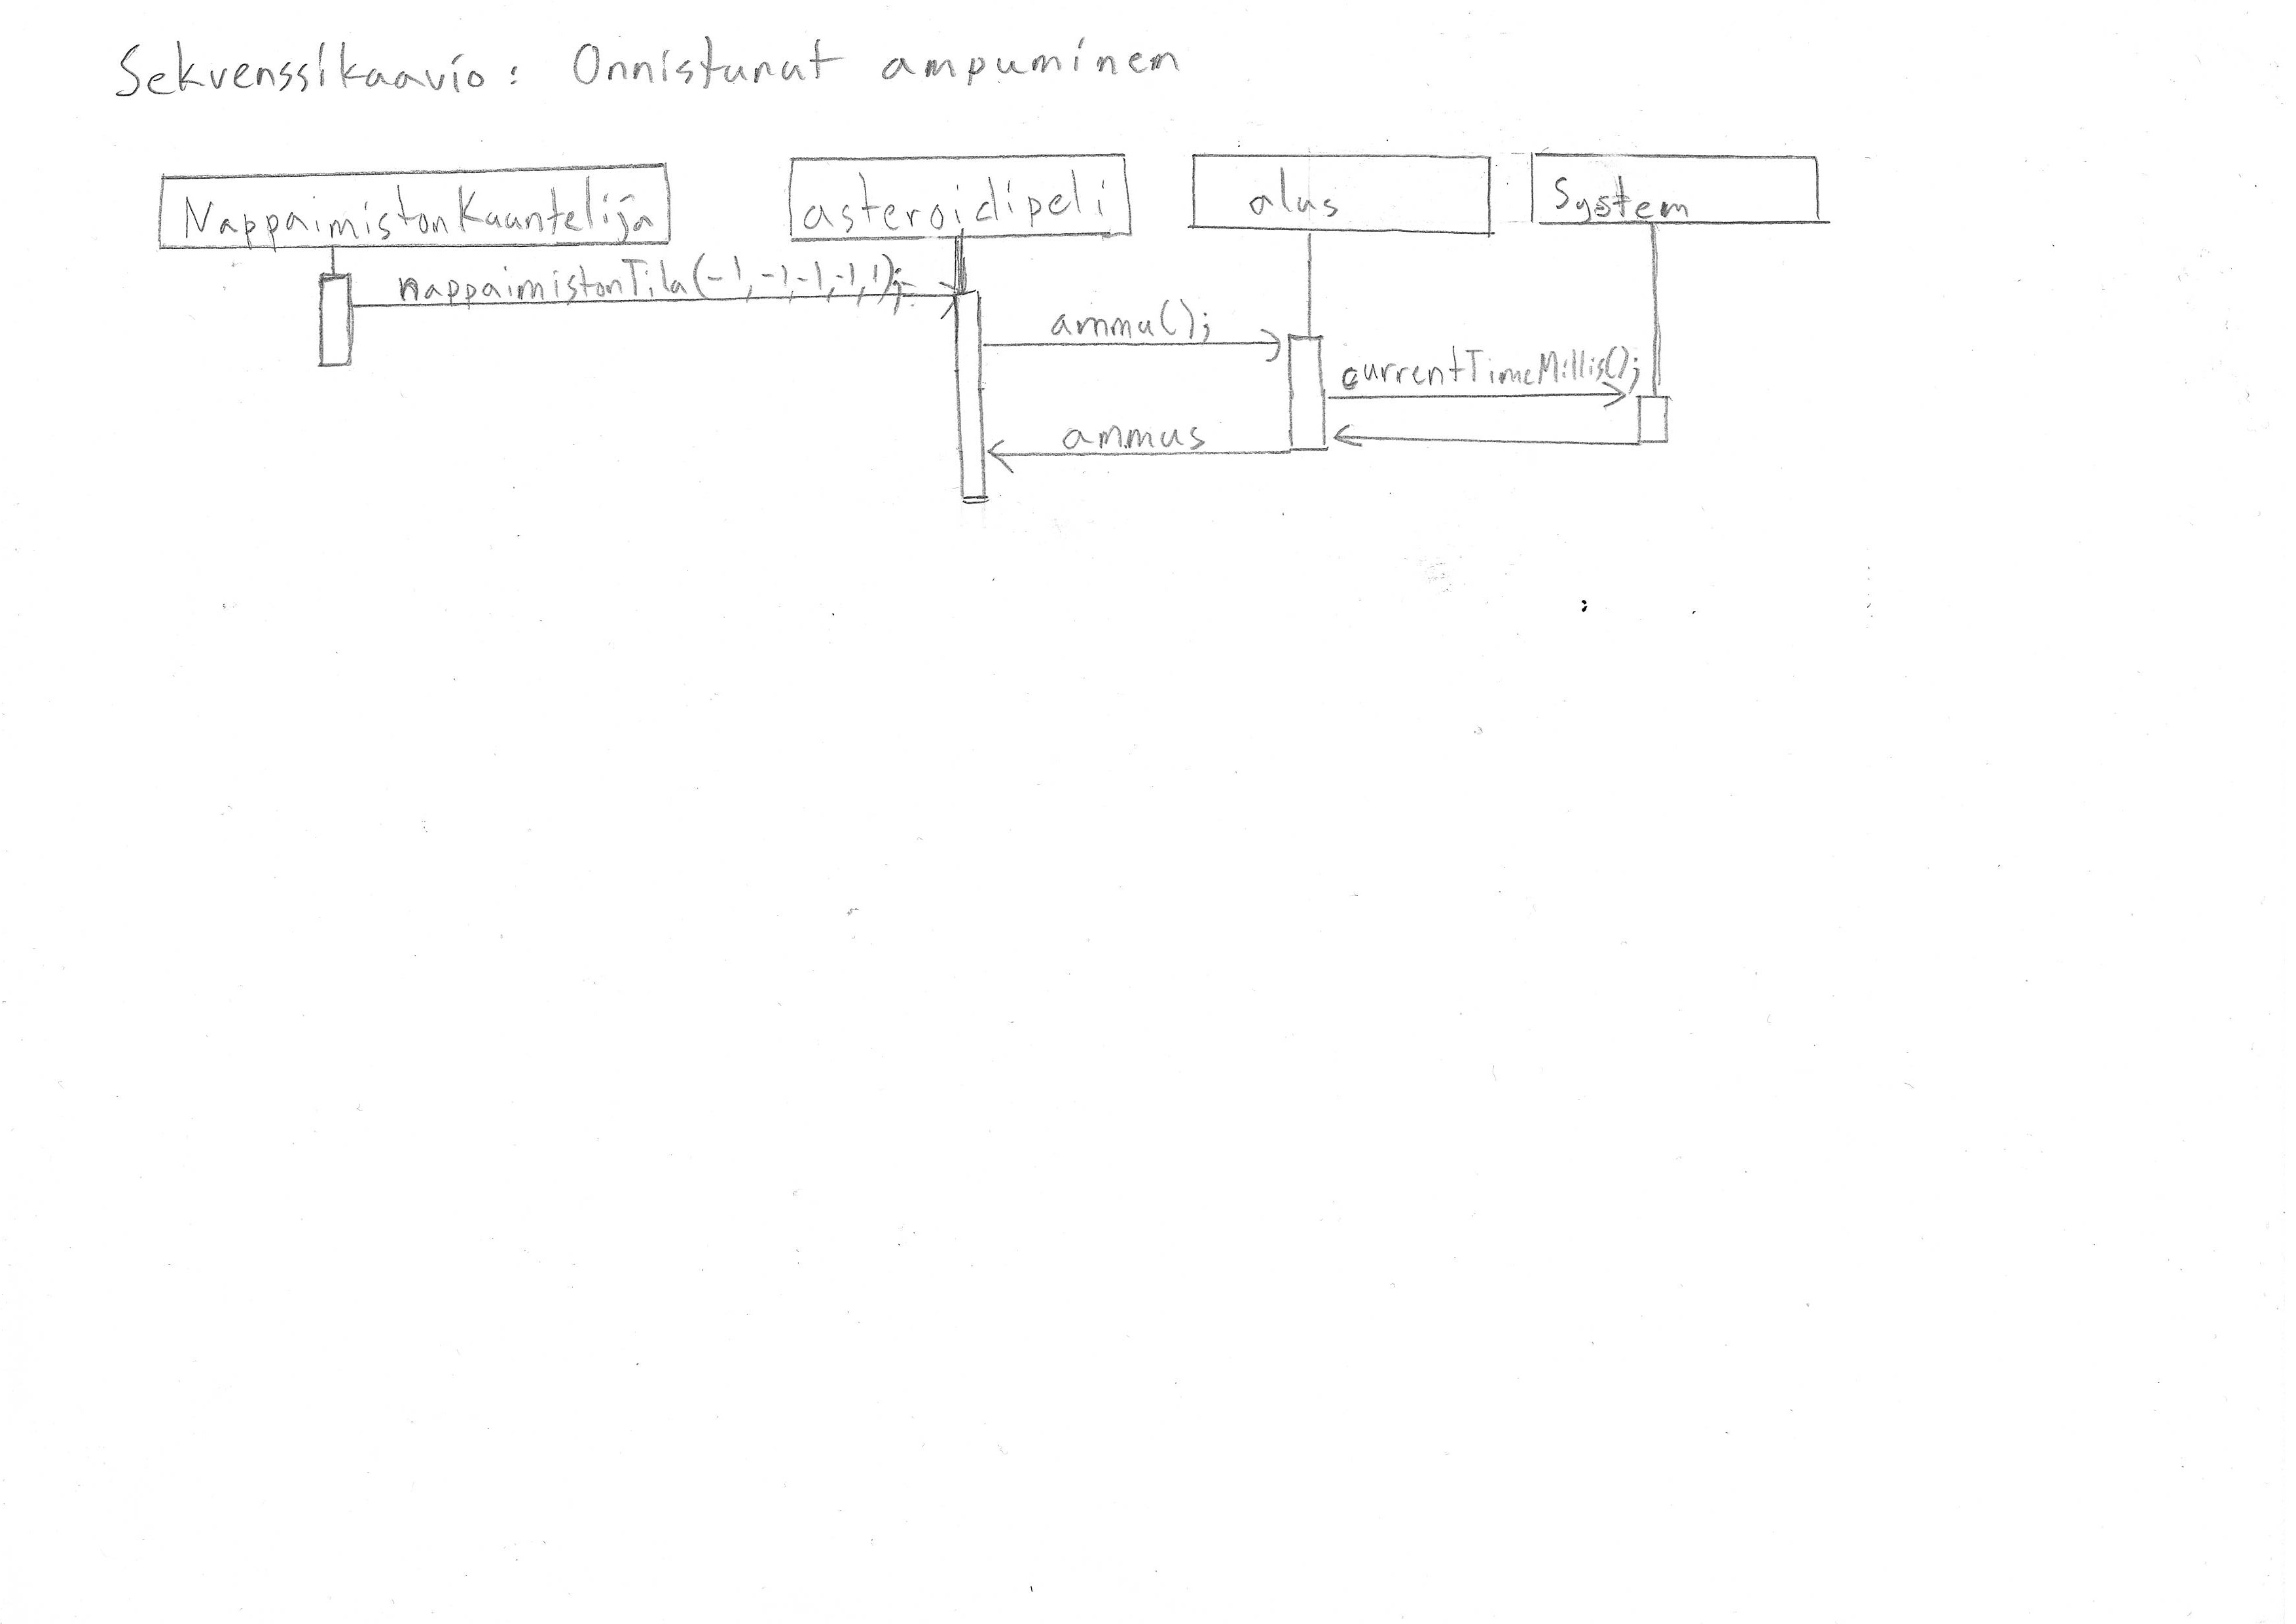 Sekvenssikaavio: Onnistunut ampuminen
NappaimistonKuuntelija asteroidipeli alus System
nappaimistonTila(-1,-1,-1,-1,1);
ammu();
currentTimeMillis();
ammus